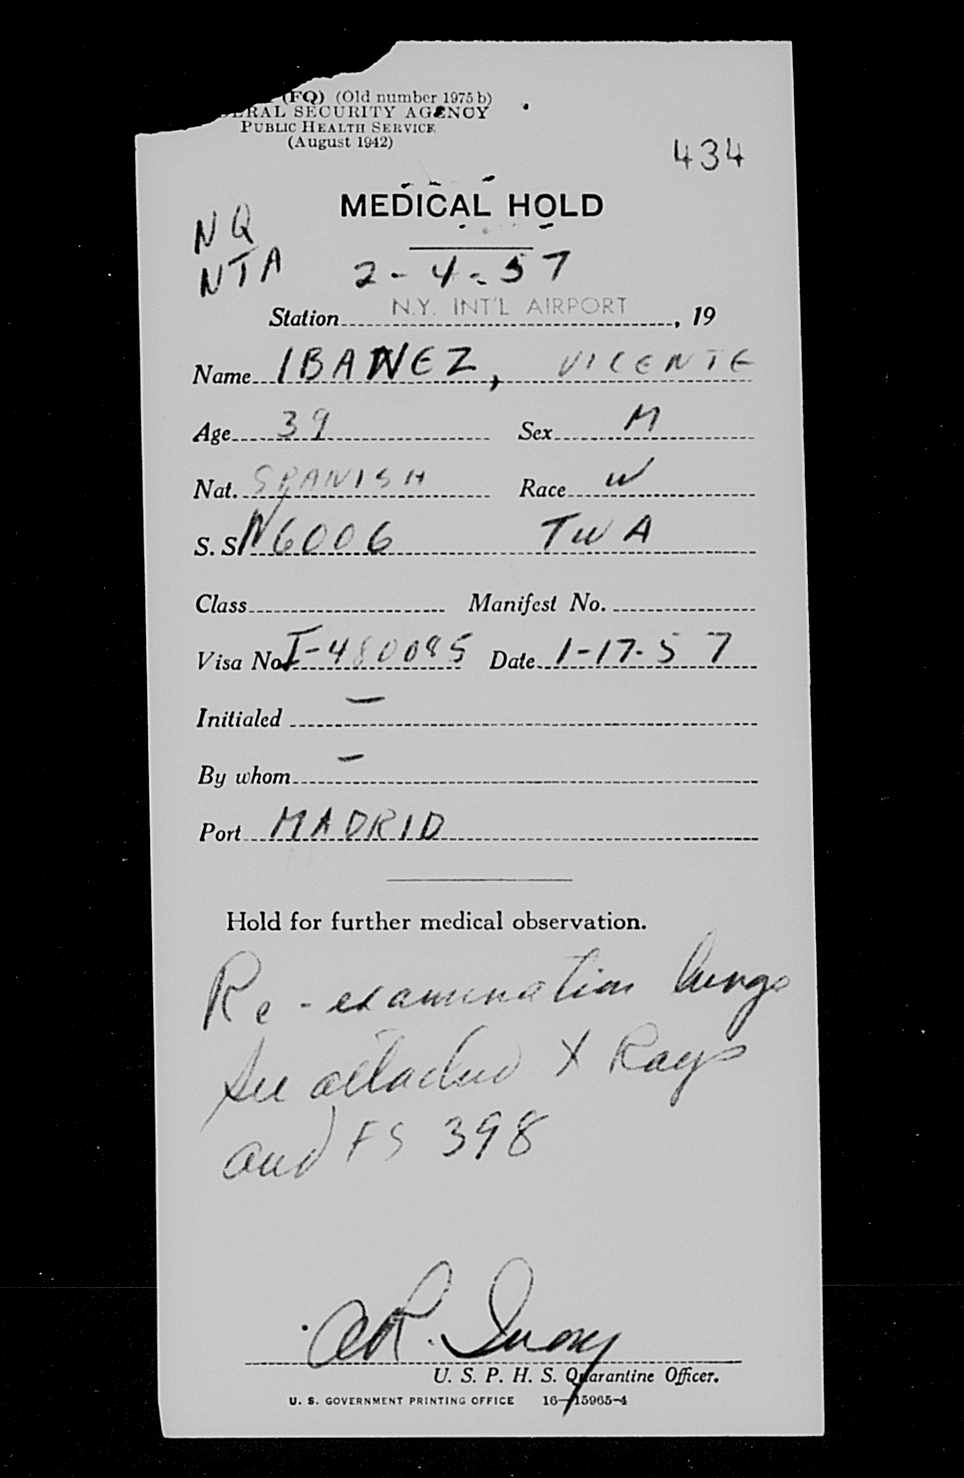 (FQ) (Old number 1975 b)
ERAL SECURITY AGENCY
PUBLIC HEALTH SERVICE
(August 1942)
434
MEDICAL HOLD
NQ
NTA
2-4-57
Station N.Y. INT'L AIRPORT, 19
Name IBANEZ, VICENTE
Age 39 Sex M
Nat. SPANISH Race W
S. S. N6006 TWA
Class Manifest No.
Visa No. I-480095 Date 1-17-57
Initialed —
By whom —
Port MADRID
Hold for further medical observation.
Re-examination lungs
see attached X Rays
and FS 398
U. S. P. H. S. Quarantine Officer.
U. S. GOVERNMENT PRINTING OFFICE 16—15965-4